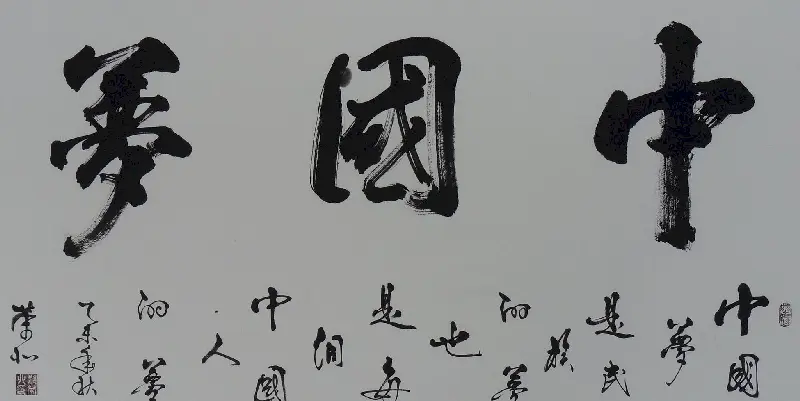 中國夢
中國
夢
是民
族
的夢
也
是每
個
中國
人
的夢
乙未年秋